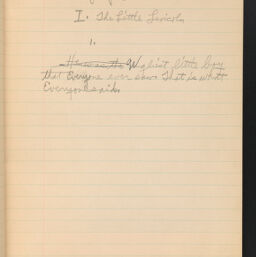 I. The Little Lincoln
1.
He was the Ugliest little boy
that Everyone ever saw. That is what
Everyone said.